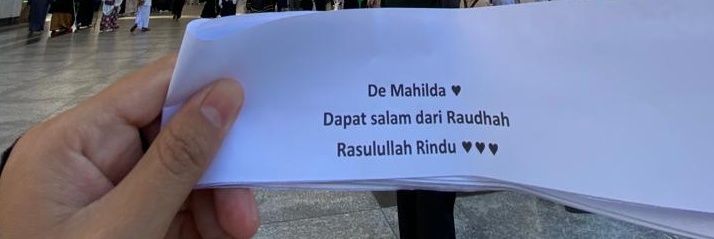 De Mahilda ♥
Dapat salam dari Raudhah
Rasulullah Rindu ♥♥♥